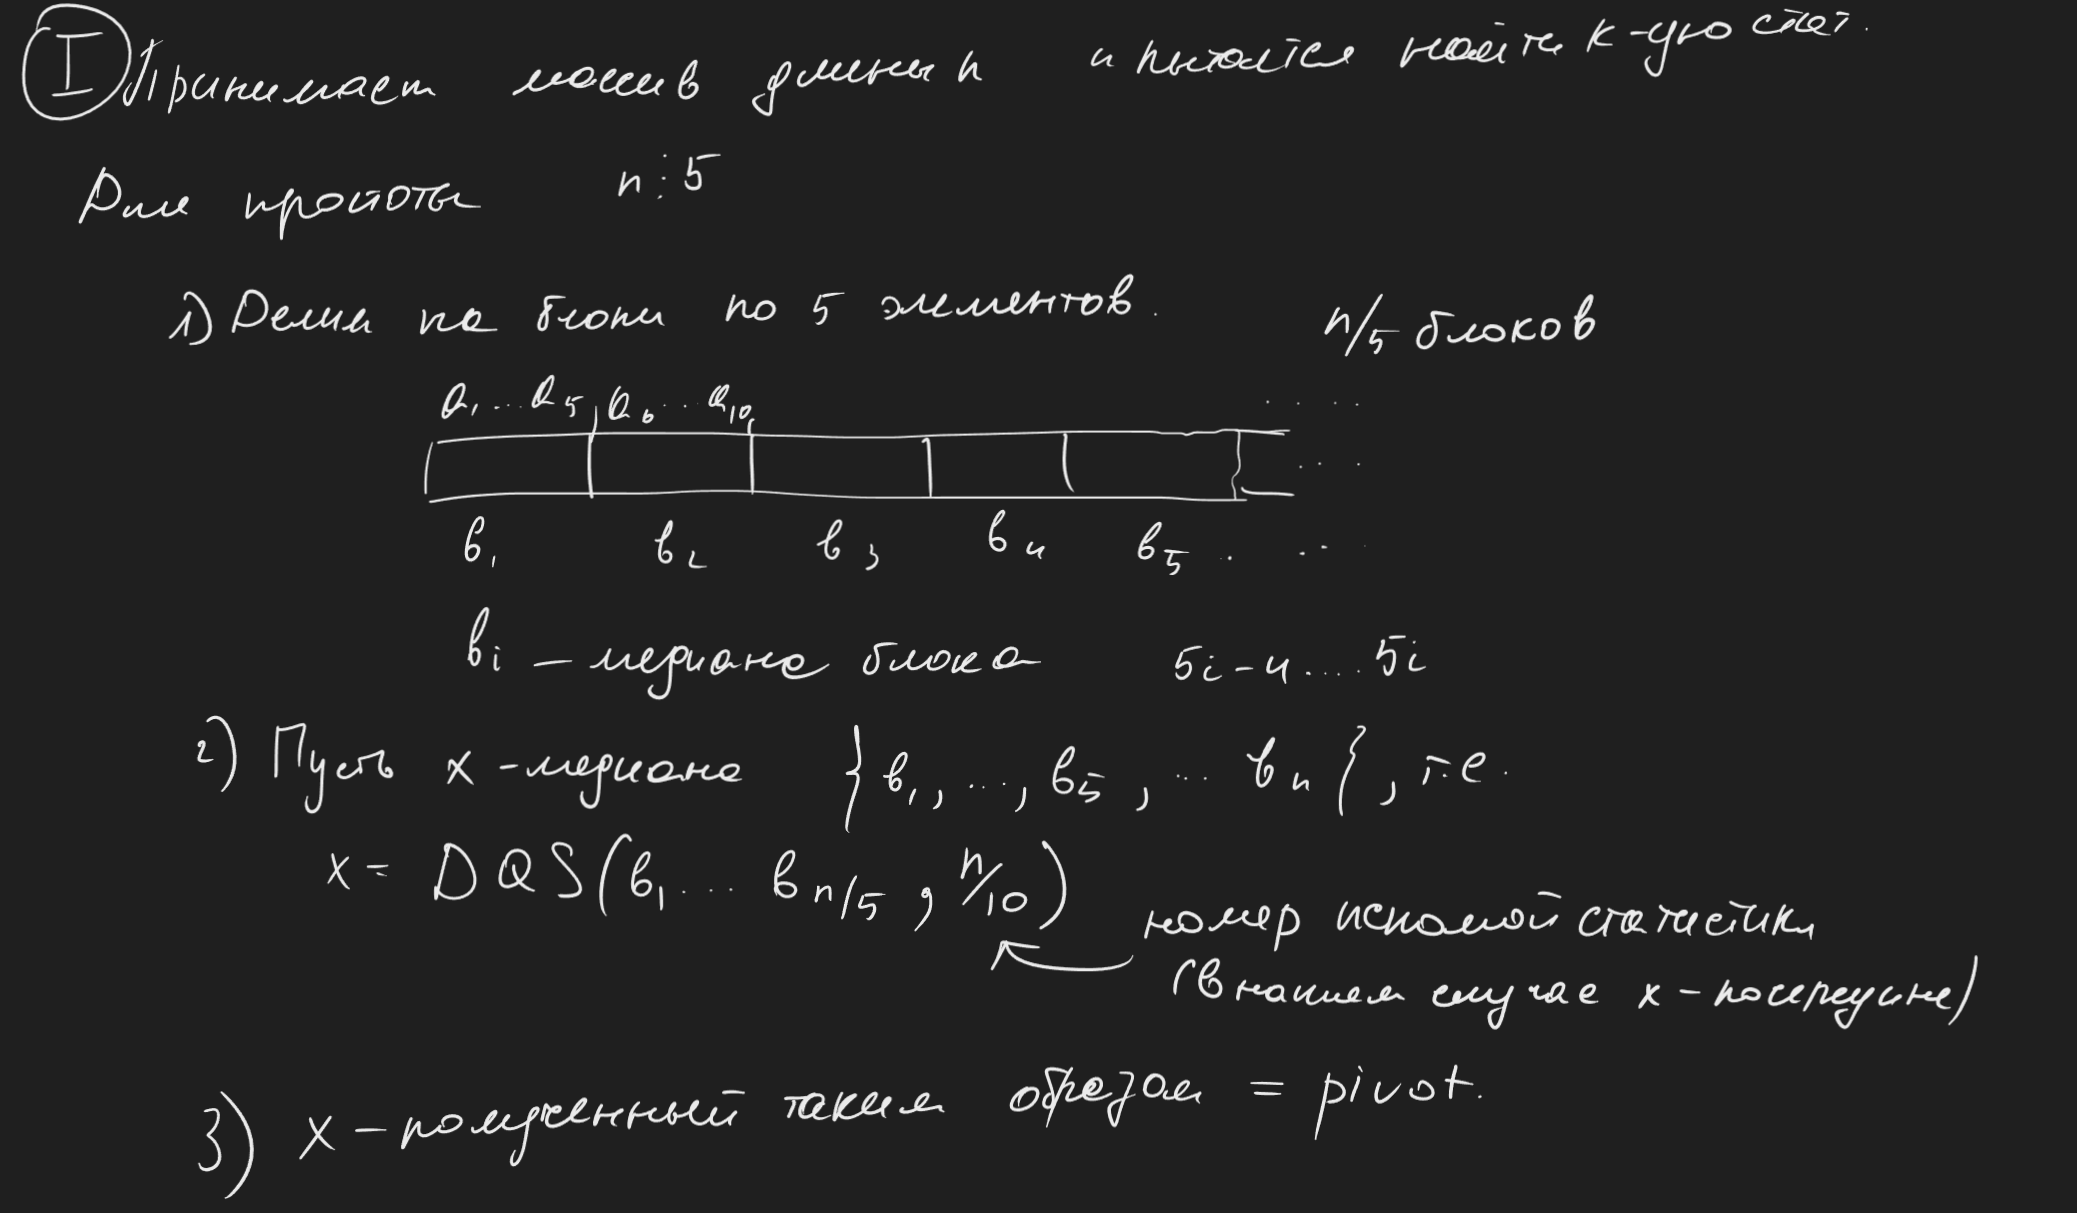 I Принимает массив длины n и пытается найти k-ую стат.
Для простоты n ⋮ 5
1) Делим на блоки по 5 элементов. n/5 блоков
a₁ ... a₅, a₆ ... a₁₀, ....
b₁ b₂ b₃ b₄ b₅ . ...
bᵢ – медиана блока 5i-4 .... 5i
2) Пусть x - медиана {b₁, ..., b₅, ... bₙ}, т.е.
x = DQS(b₁ ... b n/5, n/10)
номер искомой статистики
(в нашем случае x - посередине)
3) x - полученный таким образом = pivot.